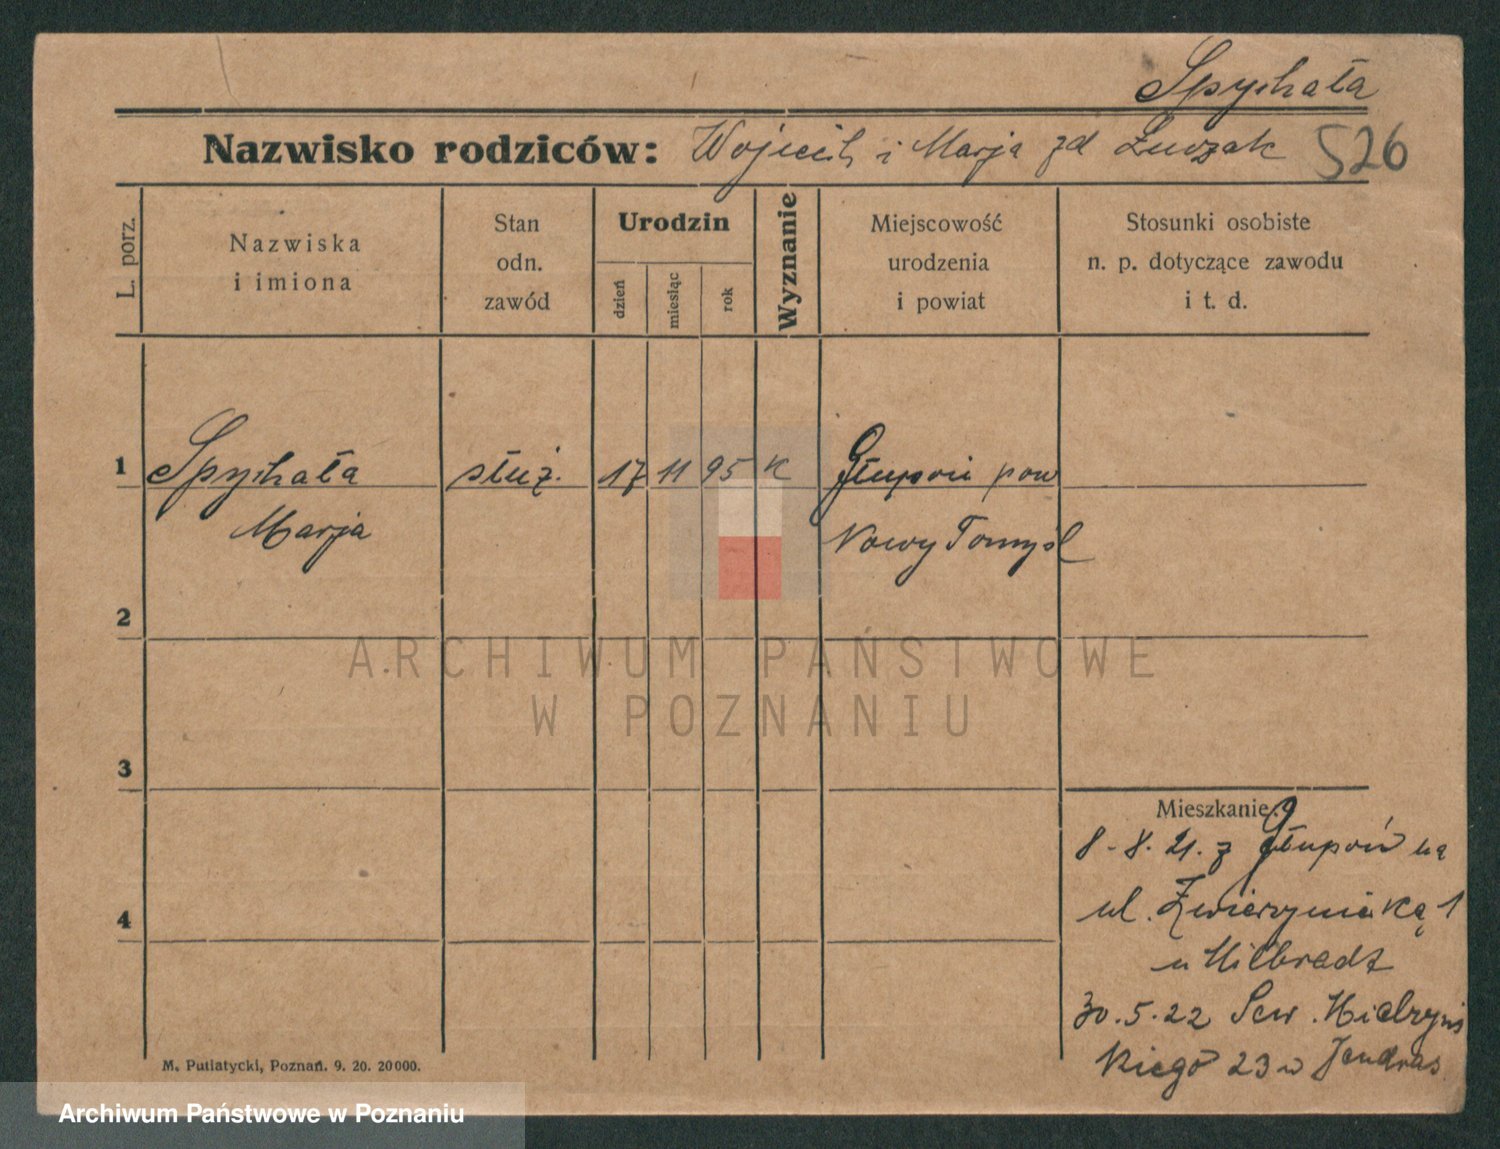 Spychała
Nazwisko rodziców: Wojciech i Marja zd Łuczak 526
L. porz.
Nazwiska
i imiona
Stan
odn.
zawód
Urodzin
dzień
miesiąc
rok
Wyznanie
Miejscowość
urodzenia
i powiat
Stosunki osobiste
n. p. dotyczące zawodu
i t. d.
1 Spychała służ. 17 11 95 K Głuponie pow
Marja Nowy Tomyśl
2
ARCHIWUM PAŃSTWOWE
W POZNANIU
3
Mieszkanie
8-8.21. z Głupoń na
4 ul. Zwierzyniecką 1
u Hilbradt
30.5.22 Sew. Mielżyńs
kiego 23 u Jendras
M. Putiatycki, Poznań. 9. 20. 20000.
Archiwum Państwowe w Poznaniu